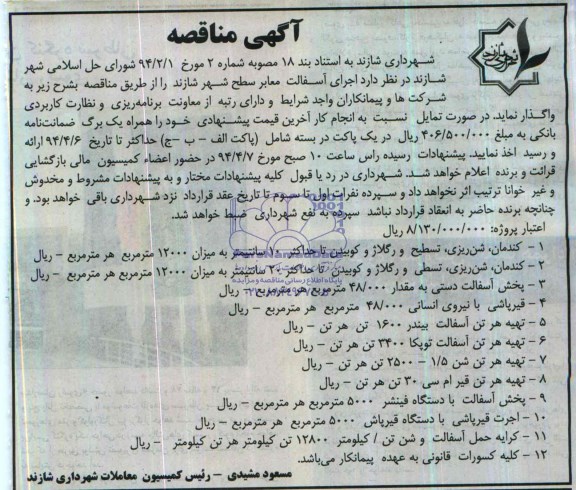 آگهی مناقصه
شهرداری شازند
شهرداری شازند به استناد بند ۱۸ مصوبه شماره ۲ مورخ ۹۴/۲/۱ شورای حل اسلامی شهر
شازند در نظر دارد اجرای آسفالت معابر سطح شهر شازند را از طریق مناقصه بشرح زیر به
شرکت ها و پیمانکاران واجد شرایط و دارای رتبه از معاونت برنامه‌ریزی و نظارت کاربردی
واگذار نماید. در صورت تمایل نسبت به انجام کار آخرین قیمت پیشنهادی خود را همراه یک برگ ضمانت‌نامه
بانکی به مبلغ ۴۰۶/۵۰۰/۰۰۰ ریال در یک پاکت در بسته شامل (پاکت الف – ب – ج) حداکثر تا تاریخ ۹۴/۴/۶ ارائه
و رسید اخذ نمایید. پیشنهادات رسیده راس ساعت ۱۰ صبح مورخ ۹۴/۴/۷ در حضور اعضاء کمیسیون مالی بازگشایی
قرائت و برنده اعلام خواهد شد. شهرداری در رد یا قبول کلیه پیشنهادات مختار و به پیشنهادات مشروط و مخدوش
و غیر خوانا ترتیب اثر نخواهد داد و سپرده نفرات اول تا سوم تا تاریخ عقد قرارداد نزد شهرداری باقی خواهد بود. و
چنانچه برنده حاضر به انعقاد قرارداد نباشد سپرده به نفع شهرداری ضبط خواهد شد.
اعتبار پروژه: ۸/۱۳۰/۰۰۰/۰۰۰ ریال
۱ – کندمان، شن‌ریزی، تسطیح و رگلاژ و کوبیدن تا حداکثر ۱۰ سانتیمتر به میزان ۱۲۰۰۰ مترمربع هر مترمربع – ریال
۲ – کندمان، شن‌ریزی، تسطی و رگلاژ و کوبیدن تا حداکثر ۲۰ سانتیمتر به میزان ۱۲۰۰۰ مترمربع هر مترمربع – ریال
۳ – پخش آسفالت دستی به مقدار ۴۸/۰۰۰ مترمربع هر مترمربع – ریال
۴ – قیرپاشی با نیروی انسانی ۴۸/۰۰۰ مترمربع هر مترمربع – ریال
۵ – تهیه هر تن آسفالت بیندر ۱۶۰۰ تن هر تن – ریال
۶ – تهیه هر تن آسفالت توپکا ۳۴۰۰ تن هر تن – ریال
۷ – تهیه هر تن شن ۱/۵ – ۲۵۰۰ تن هر تن – ریال
۸ – تهیه هر تن قیر ام سی ۳۰ تن هر تن – ریال
۹ – پخش آسفالت با دستگاه فینشر ۵۰۰۰ مترمربع هر مترمربع – ریال
۱۰ – اجرت قیرپاشی با دستگاه قیرپاش ۵۰۰۰ مترمربع هر مترمربع – ریال
۱۱ – کرایه حمل آسفالت و شن تن / کیلومتر ۱۲۸۰۰ تن کیلومتر هر تن کیلومتر – ریال
۱۲ – کلیه کسورات قانونی به عهده پیمانکار می‌باشد.
مسعود مشیدی – رئیس کمیسیون معاملات شهرداری شازند